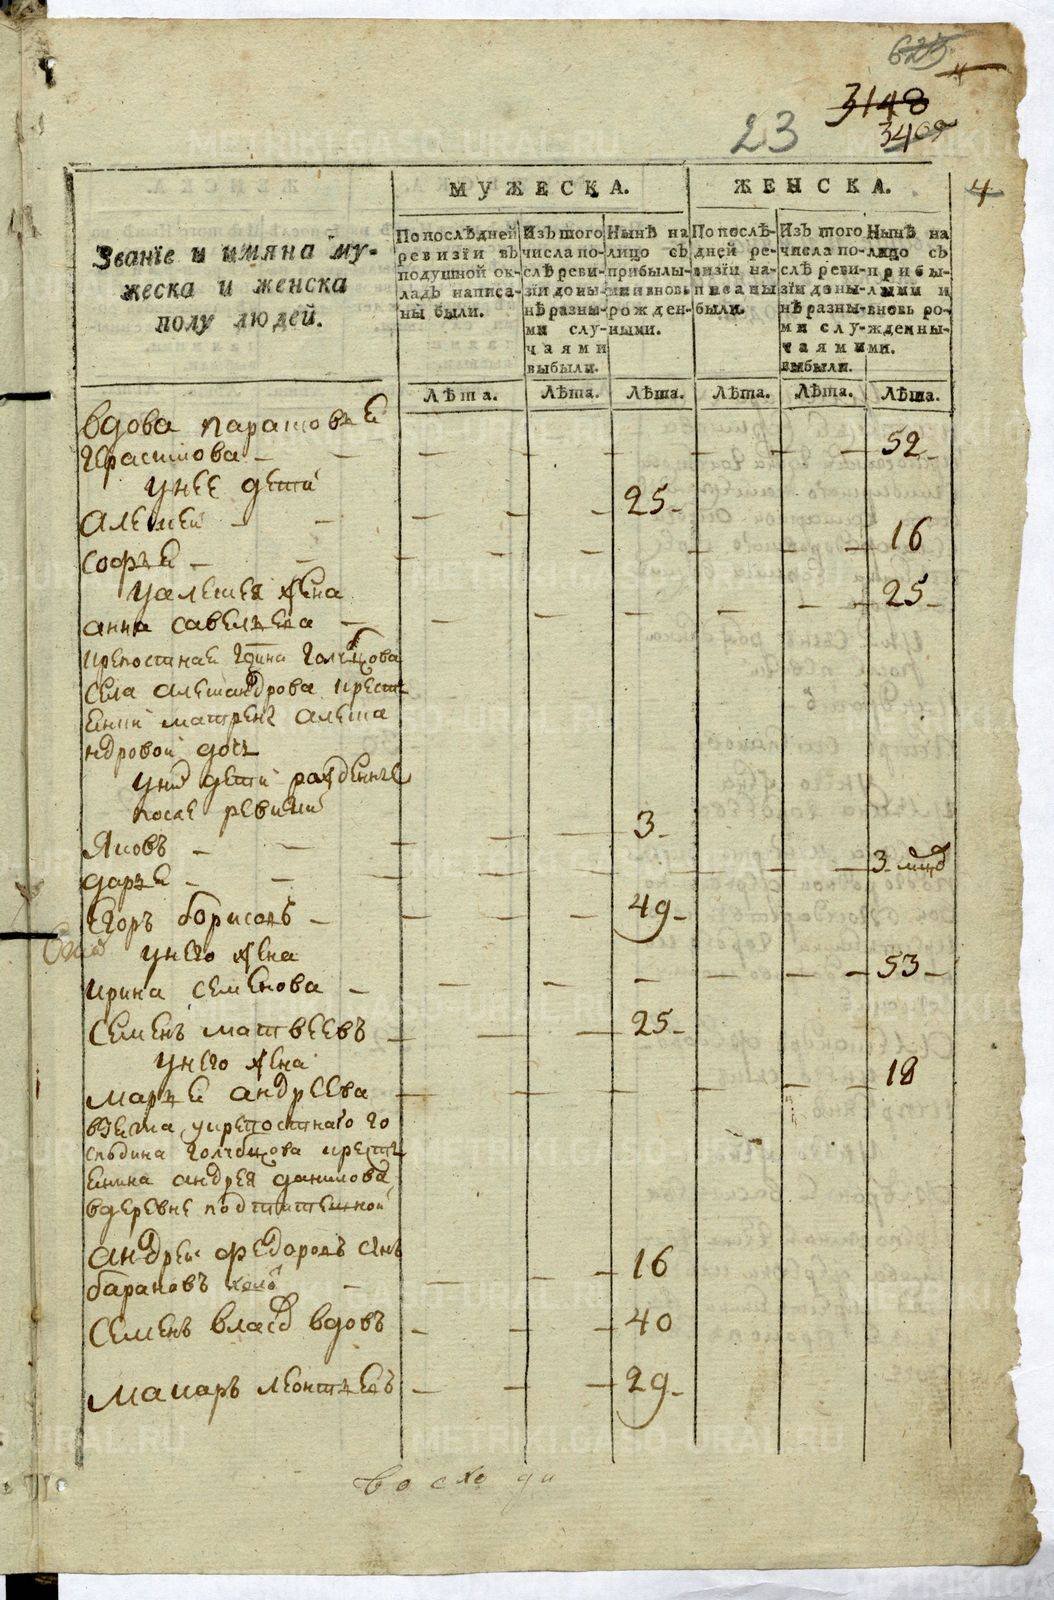 625
3148
23
3409
4
МУЖЕСКА.
ЖЕНСКА.
Званїе и имяна му-
жеска и женска
полу людей.
По послѣдней
ревизїи въ
подушной ок-
ладъ написа-
ны были.
Изъ того
числа по-
слѣ реви-
зїи до ны-
нѣ разны-
ми слу-
чаями
выбыли.
Нынѣ на
лицо съ
прибылы-
ми и вновь
рожден-
ными.
По послѣ-
дней ре-
визїи на-
писаны
были.
Изъ того
числа по-
слѣ реви-
зїи до ны-
нѣ разны-
ми слу-
чаями
выбыли.
Нынѣ на
лицо съ
прибы-
лыми и
вновь ро-
жденны-
ми.
Лѣта. Лѣта. Лѣта. Лѣта. Лѣта. Лѣта.
вдова парашовья
герасимова 52
унее дети
алексей 25
софья 16
уалексея жена
анна савельева 25
крепостная гдина голубцова
села александрова кресть
янки матрены алекса
ндровой дочь
уних дети рожденные
после ревизии
Яковъ 3
дарья 3
Егоръ борисовъ 49
унего жена
ирина семенова 53
семенъ матвеевъ 25
унего жена
марья андреева 18
взята укрепостнаго го
сподина голубцова кресть
янина андрея данилова
вдеревне
андрей федоровъ сынъ
барановъ холо 16
семенъ власов вдовъ 40
макаръ леонтьевъ 29